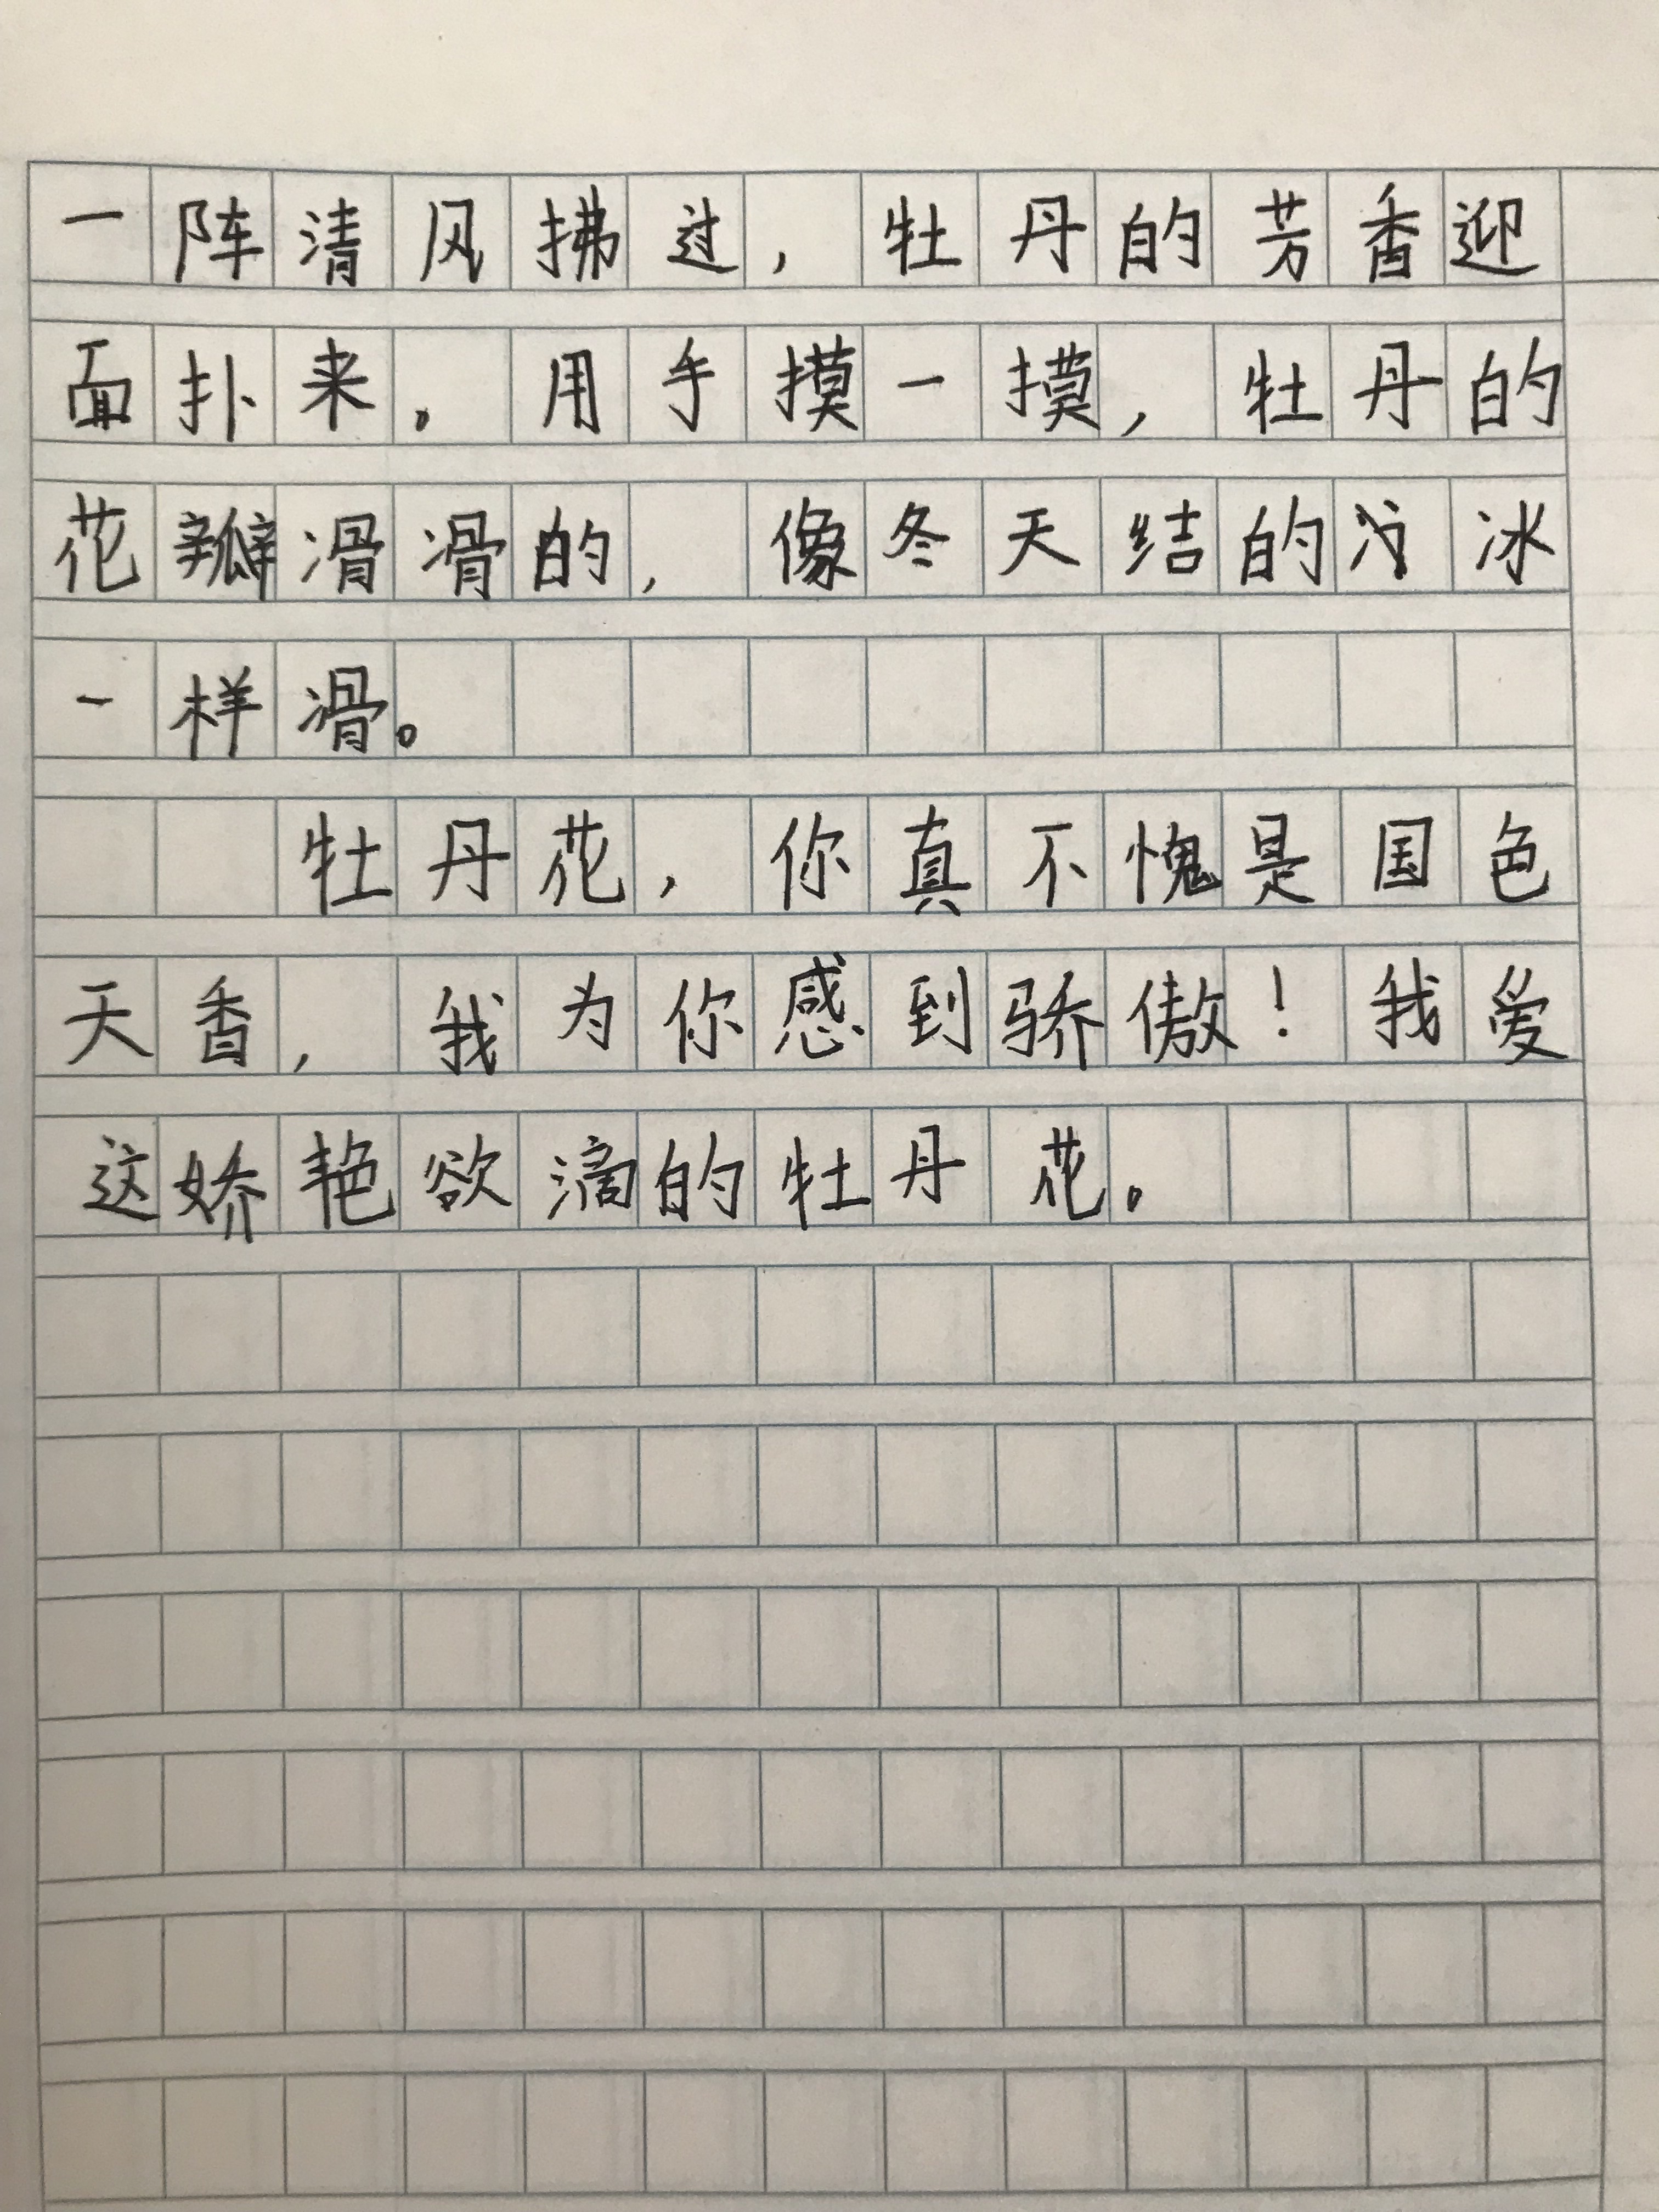 一阵清风拂过，牡丹的芳香迎
面扑来。用手摸一摸，牡丹的
花瓣滑滑的，像冬天结的冰
一样滑。
牡丹花，你真不愧是国色
天香，我为你感到骄傲！我爱
这娇艳欲滴的牡丹花。